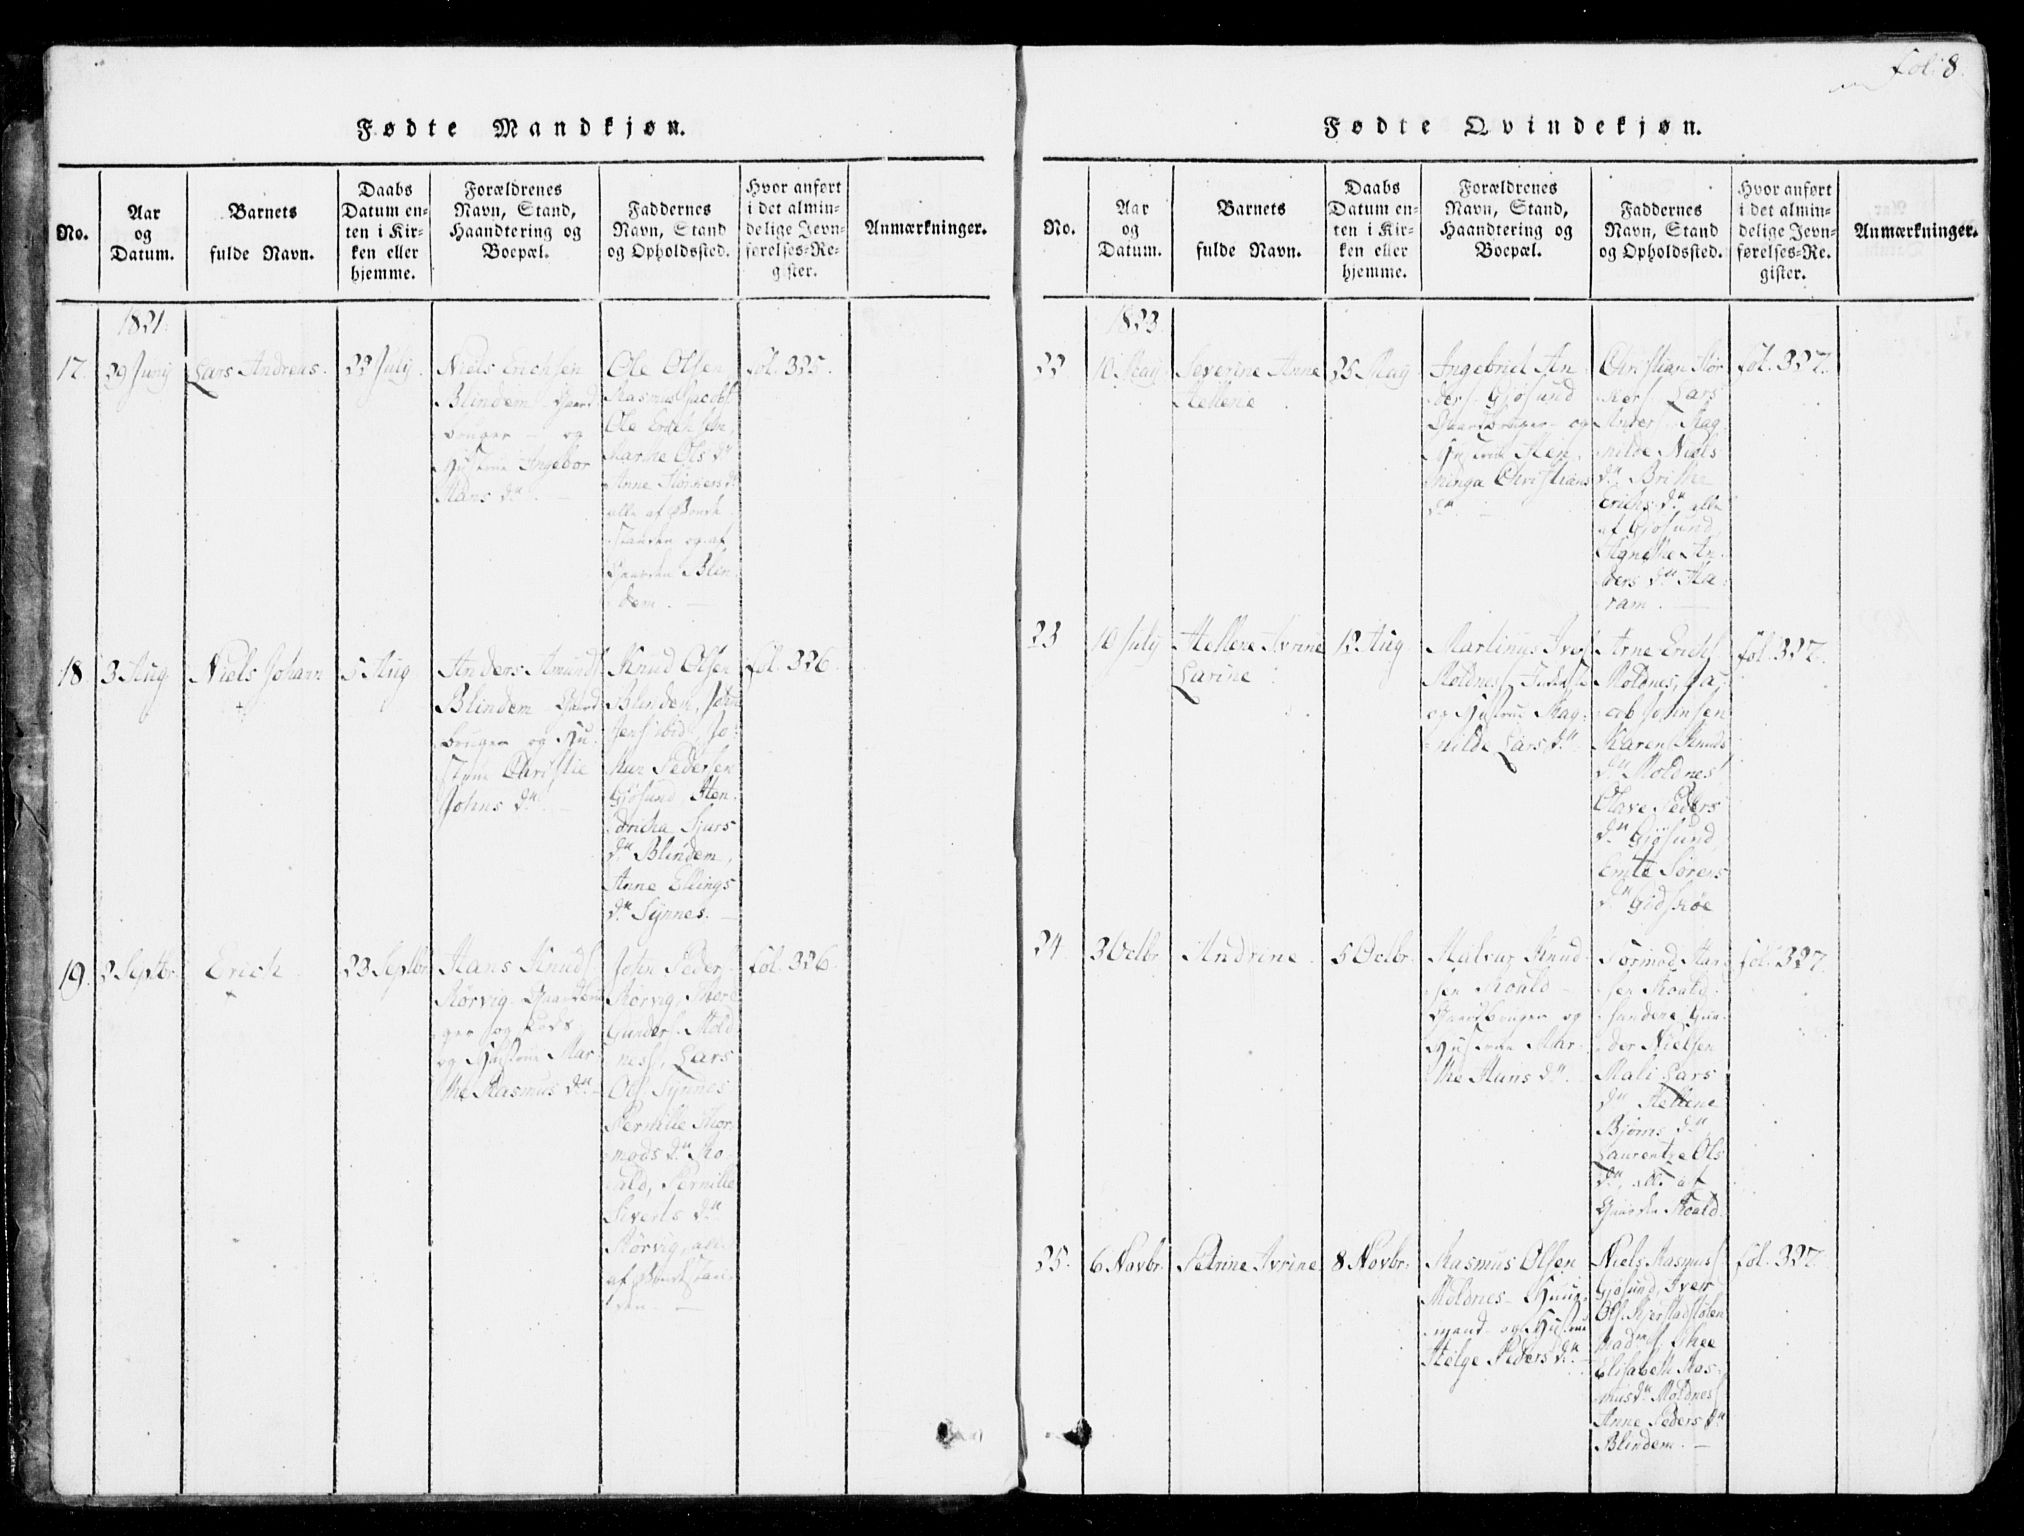 Fol. 8.
Fødte Mandkjøn.
No.
Aar
og
Datum.
Barnets
fulde Navn.
Daabs
Datum en-
ten i Kir-
ken eller
hjemme.
Forældrenes
Navn, Stand,
Haandtering og
Boepæl.
Faddernes
Navn, Stand
og Opholdssted.
Hvor anført
i det almin-
delige Jevn-
førelses-Re-
gister.
Anmærkninger.
1821.
17.
29 Juny
Lars Andreas.
22 July.
Niels Erichsen
Blindem Gaard
bruger og
Hustrue Ingebor
Hans dr.
Ole Olsen
Rasmus Jacobs
Ole Erichsen,
Marthe Ols dr
Anne
alle af Bonde
standen og af
Gaarden Blin
dem.
fol. 325.
18
3 Aug
Niels Johann
5 Aug
Anders Amunds
Blindem Gaard
bruger og Hu-
strue Christie
Johns dr.
Knud Olsen
Blindem, John
Jens ibid, Jo-
Peder sen
Gjøsund, Hen
dricha Sjurs
dr Blindem,
Anne Ellings
dr Synnes.
fol. 326.
19.
2 Septbr.
Erich
23 Septbr
Hans Knuds
Rørvig Gaardbru
ger og
og Hustrue Mar-
the Rasmus dr.
John Peders
Rørvig,
Gunders. Mold
nes, Lars
Ols. Synnes
Pernille Thor
mods dr Ro-
ald, Pernille
Siverts dr
Rørvig, alle
af Bondestan-
den.
fol. 326.
Fødte Qvindekjøn.
No.
Aar
og
Datum.
Barnets
fulde Navn.
Daabs
Datum en-
ten i Kir-
ken eller
hjemme.
Forældrenes
Navn, Stand,
Haandtering og
Boepæl.
Faddernes
Navn, Stand
og Opholdssted.
Hvor anført
i det almin-
delige Jevn-
førelses-Re-
gister.
Anmærkninger.
1823
22
10 May
Severine Anne
Hellene
25 May
Ingebriel An
ders. Gjøsund
Gaardbruger og
Hustrue Hen
ninga Christians
dr.
Christian Stør
kers. Lars
Anders. Rag
nilde Niels
dr Brithe
Erichs dr alle
af Gjøsund,
Agnethe An
ders dr Ha
ram.
fol. 327.
23
10 July
Hellene Ivrine
Larine
12 Aug
Martinus Ivers
Moldnes
og Hustrue Rag
nilde Lars dr.
Arne Erichs
Moldnes, Ja
cob Johnsen
Karen Knuds
dr Moldnes
Olave Peders
dr Gjøsund,
Emte Sørens
dr Godskøe
fol. 327.
24.
3 Octbr
Andrine
5 Octbr.
Halvar Knud
sen Roald
Gaardbruger og
Hustrue Mar-
the Hans dr.
Tormod Han
sen Roald
Gun
der Nielsen
Mali Lars
dr Hellene
Bjørns dr
Laurentze Ols
dr, alle af
Gaarden Roald.
fol. 327.
25.
6 Novbr.
Petrine Ivrine
8 Novbr.
Rasmus Olsen
Moldnes Huus
mand og Hustrue
Helge Peders dr.
Niels Rasmus
Gjøsund, Iver
Ols.
Madm.
Elisabeth Ras-
mus dr Moldnes
Anne Peders dr
Blindem.
fol. 327.